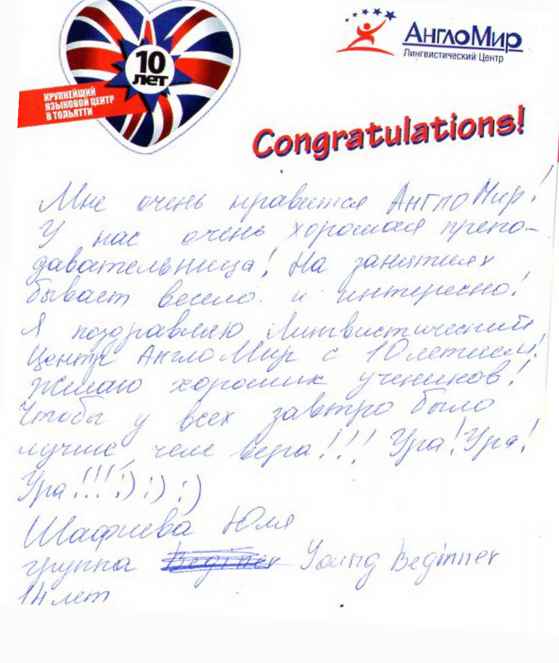 10
ЛЕТ
КРУПНЕЙШИЙ
ЯЗЫКОВОЙ ЦЕНТР
В ТОЛЬЯТТИ
АнглоМир
Лингвистический Центр
Congratulations!
Мне очень нравится АнглоМир!
У нас очень хорошая препо-
давательница! На занятиях
бывает весело и интересно!
Я поздравляю Лингвистический
Центр АнглоМир с 10летием!
Желаю хороших учеников!
Чтобы у всех завтро было
лучше, чем вчера!!! Ура! Ура!
Ура!!! :) :) :)
Шафиева Юля
группа Beginner Young Beginner
14 лет